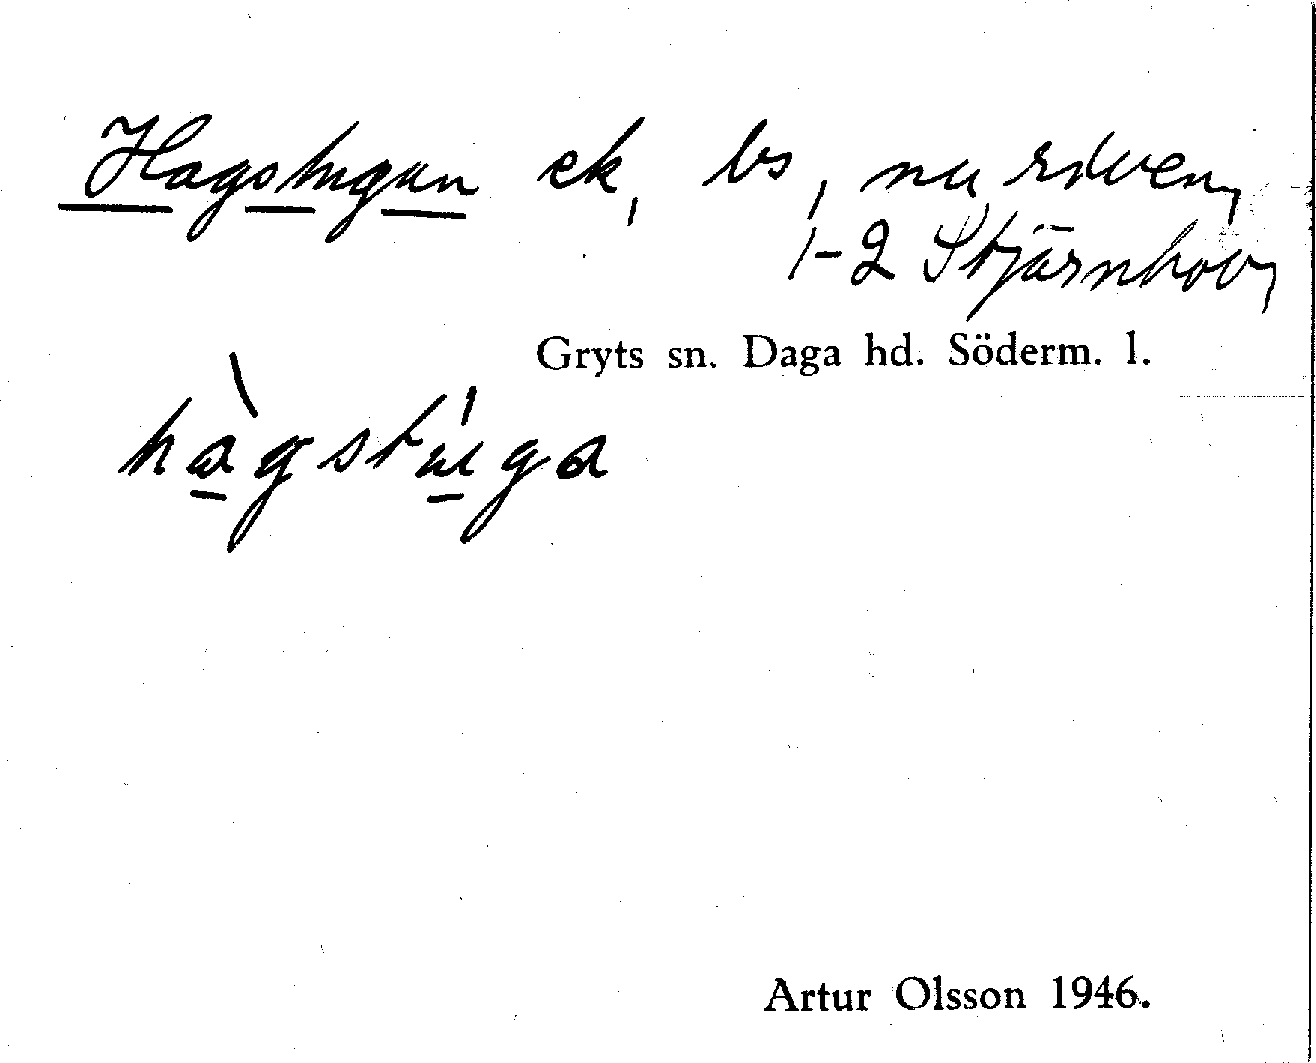 Hagstugan ek, bs, nu riven,
1-2 Stjärnhov,
Gryts sn. Daga hd. Söderm. l.
hàgstúga
Artur Olsson 1946.